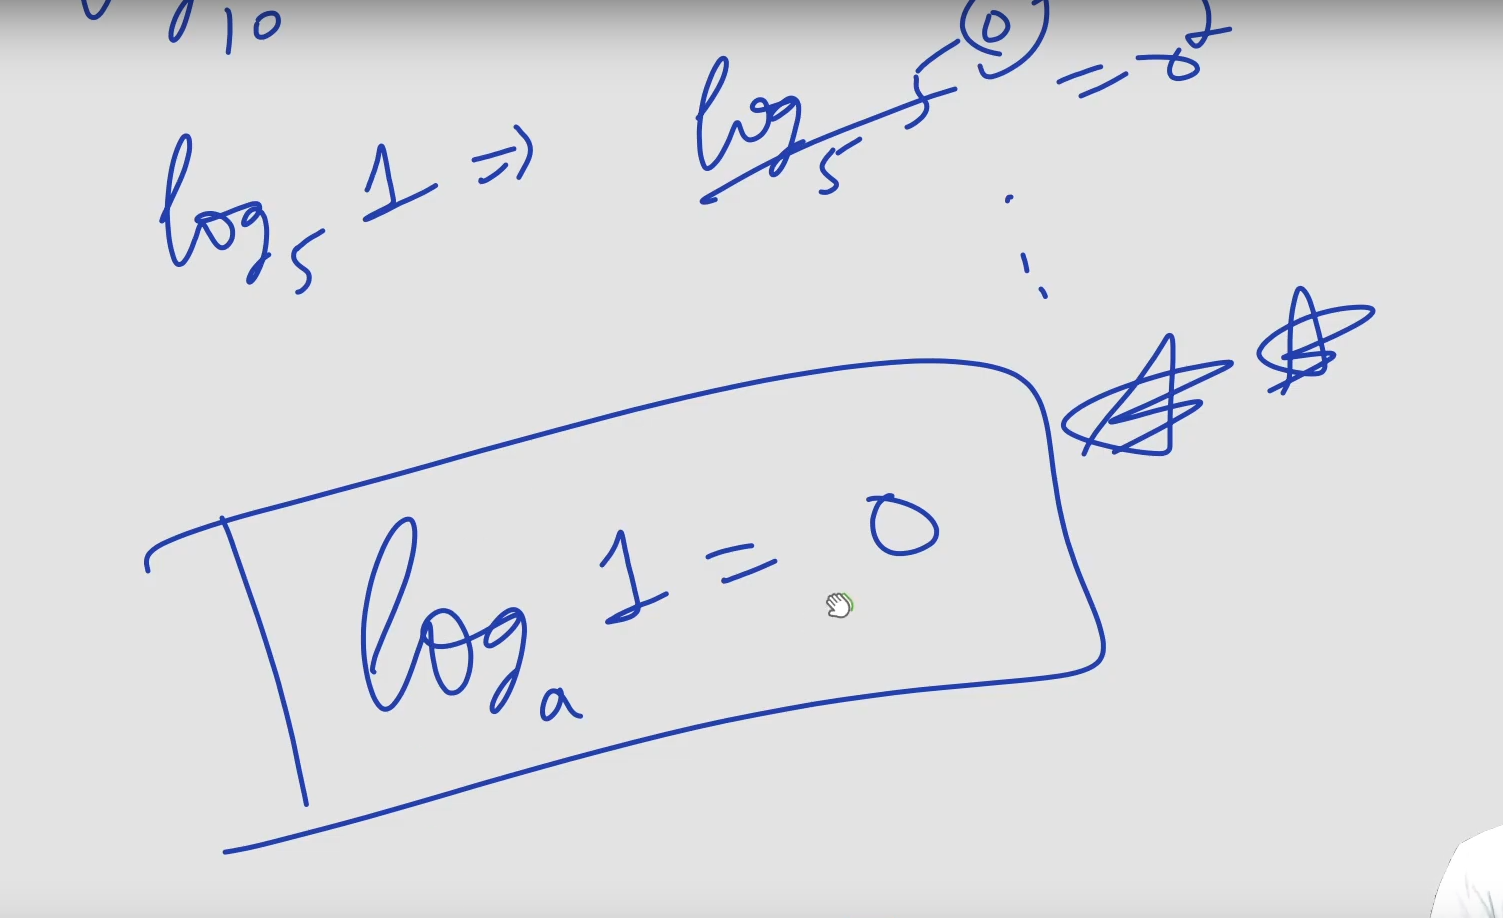 log₅ 1 ⇒ log₅ 5⁰ = 0
logₐ 1 = 0